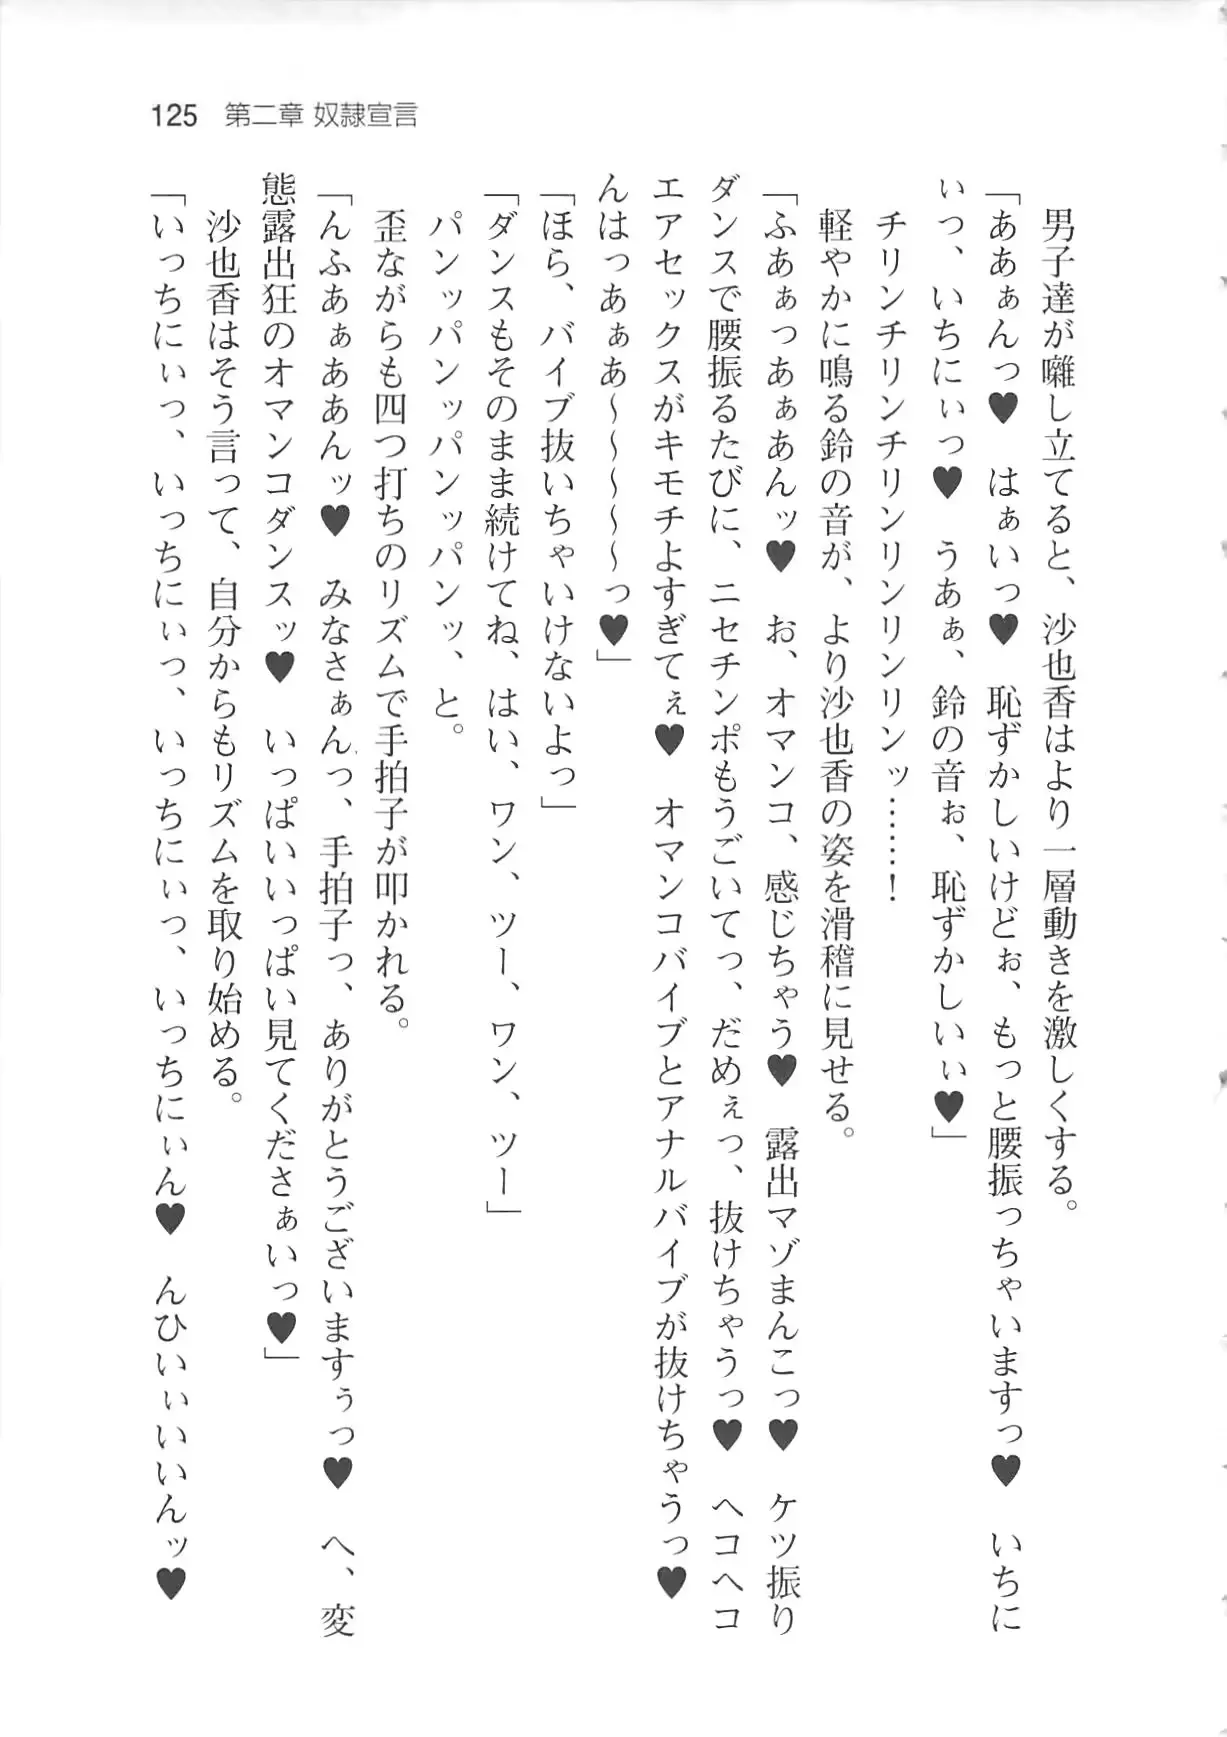 125 第二章 奴隷宣言
男子達が囃し立てると、沙也香はより一層動きを激しくする。
「ああぁんっ♥ はぁいっ♥ 恥ずかしいけどぉ、もっと腰振っちゃいますっ♥ いちに
ぃっ、いちにぃっ♥ うあぁ、鈴の音ぉ、恥ずかしいぃ♥」
チリンチリンチリンリンリンリンッ……！
軽やかに鳴る鈴の音が、より沙也香の姿を滑稽に見せる。
「ふあぁっあぁあんッ♥ お、オマンコ、感じちゃう♥ 露出マゾまんこっ♥ ケツ振り
ダンスで腰振るたびに、ニセチンポもうごいてっ、だめぇっ、抜けちゃうっ♥ ヘコヘコ
エアセックスがキモチよすぎてぇ♥ オマンコバイブとアナルバイブが抜けちゃうっ♥
んはっあぁあ～～～～～っ♥」
「ほら、バイブ抜いちゃいけないよっ」
「ダンスもそのまま続けてね、はい、ワン、ツー、ワン、ツー」
パンッパンッパンッパンッ、と。
歪ながらも四つ打ちのリズムで手拍子が叩かれる。
「んふあぁああんッ♥ みなさぁんっ、手拍子っ、ありがとうございますぅっ♥ へ、変
態露出狂のオマンコダンスッ♥ いっぱいいっぱい見てくださぁいっ♥」
沙也香はそう言って、自分からもリズムを取り始める。
「いっちにぃっ、いっちにぃっ、いっちにぃっ、いっちにぃん♥ んひいぃいいんッ♥